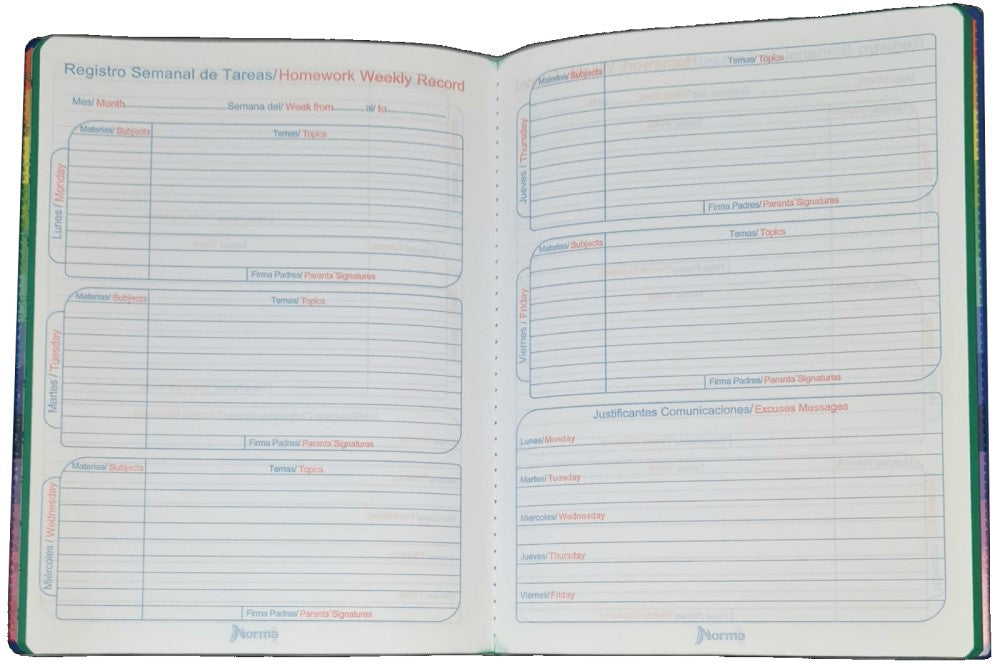 Registro Semanal de Tareas/Homework Weekly Record
Mes/ Month Semana del/ Week from al/ to
Lunes / Monday
Materias/ Subjects Temas/ Topics
Firma Padres/ Parents´Signatures
Martes / Tuesday
Materias/ Subjects Temas/ Topics
Firma Padres/ Parents´Signatures
Miércoles / Wednesday
Materias/ Subjects Temas/ Topics
Firma Padres/ Parents´Signatures
Norma
Jueves / Thursday
Materias/ Subjects Temas/ Topics
Firma Padres/ Parents´Signatures
Viernes / Friday
Materias/ Subjects Temas/ Topics
Firma Padres/ Parents´Signatures
Justificantes Comunicaciones/ Excuses Messages
Lunes/ Monday
Martes/ Tuesday
Miercoles/ Wednesday
Jueves/ Thursday
Viernes/ Friday
Norma